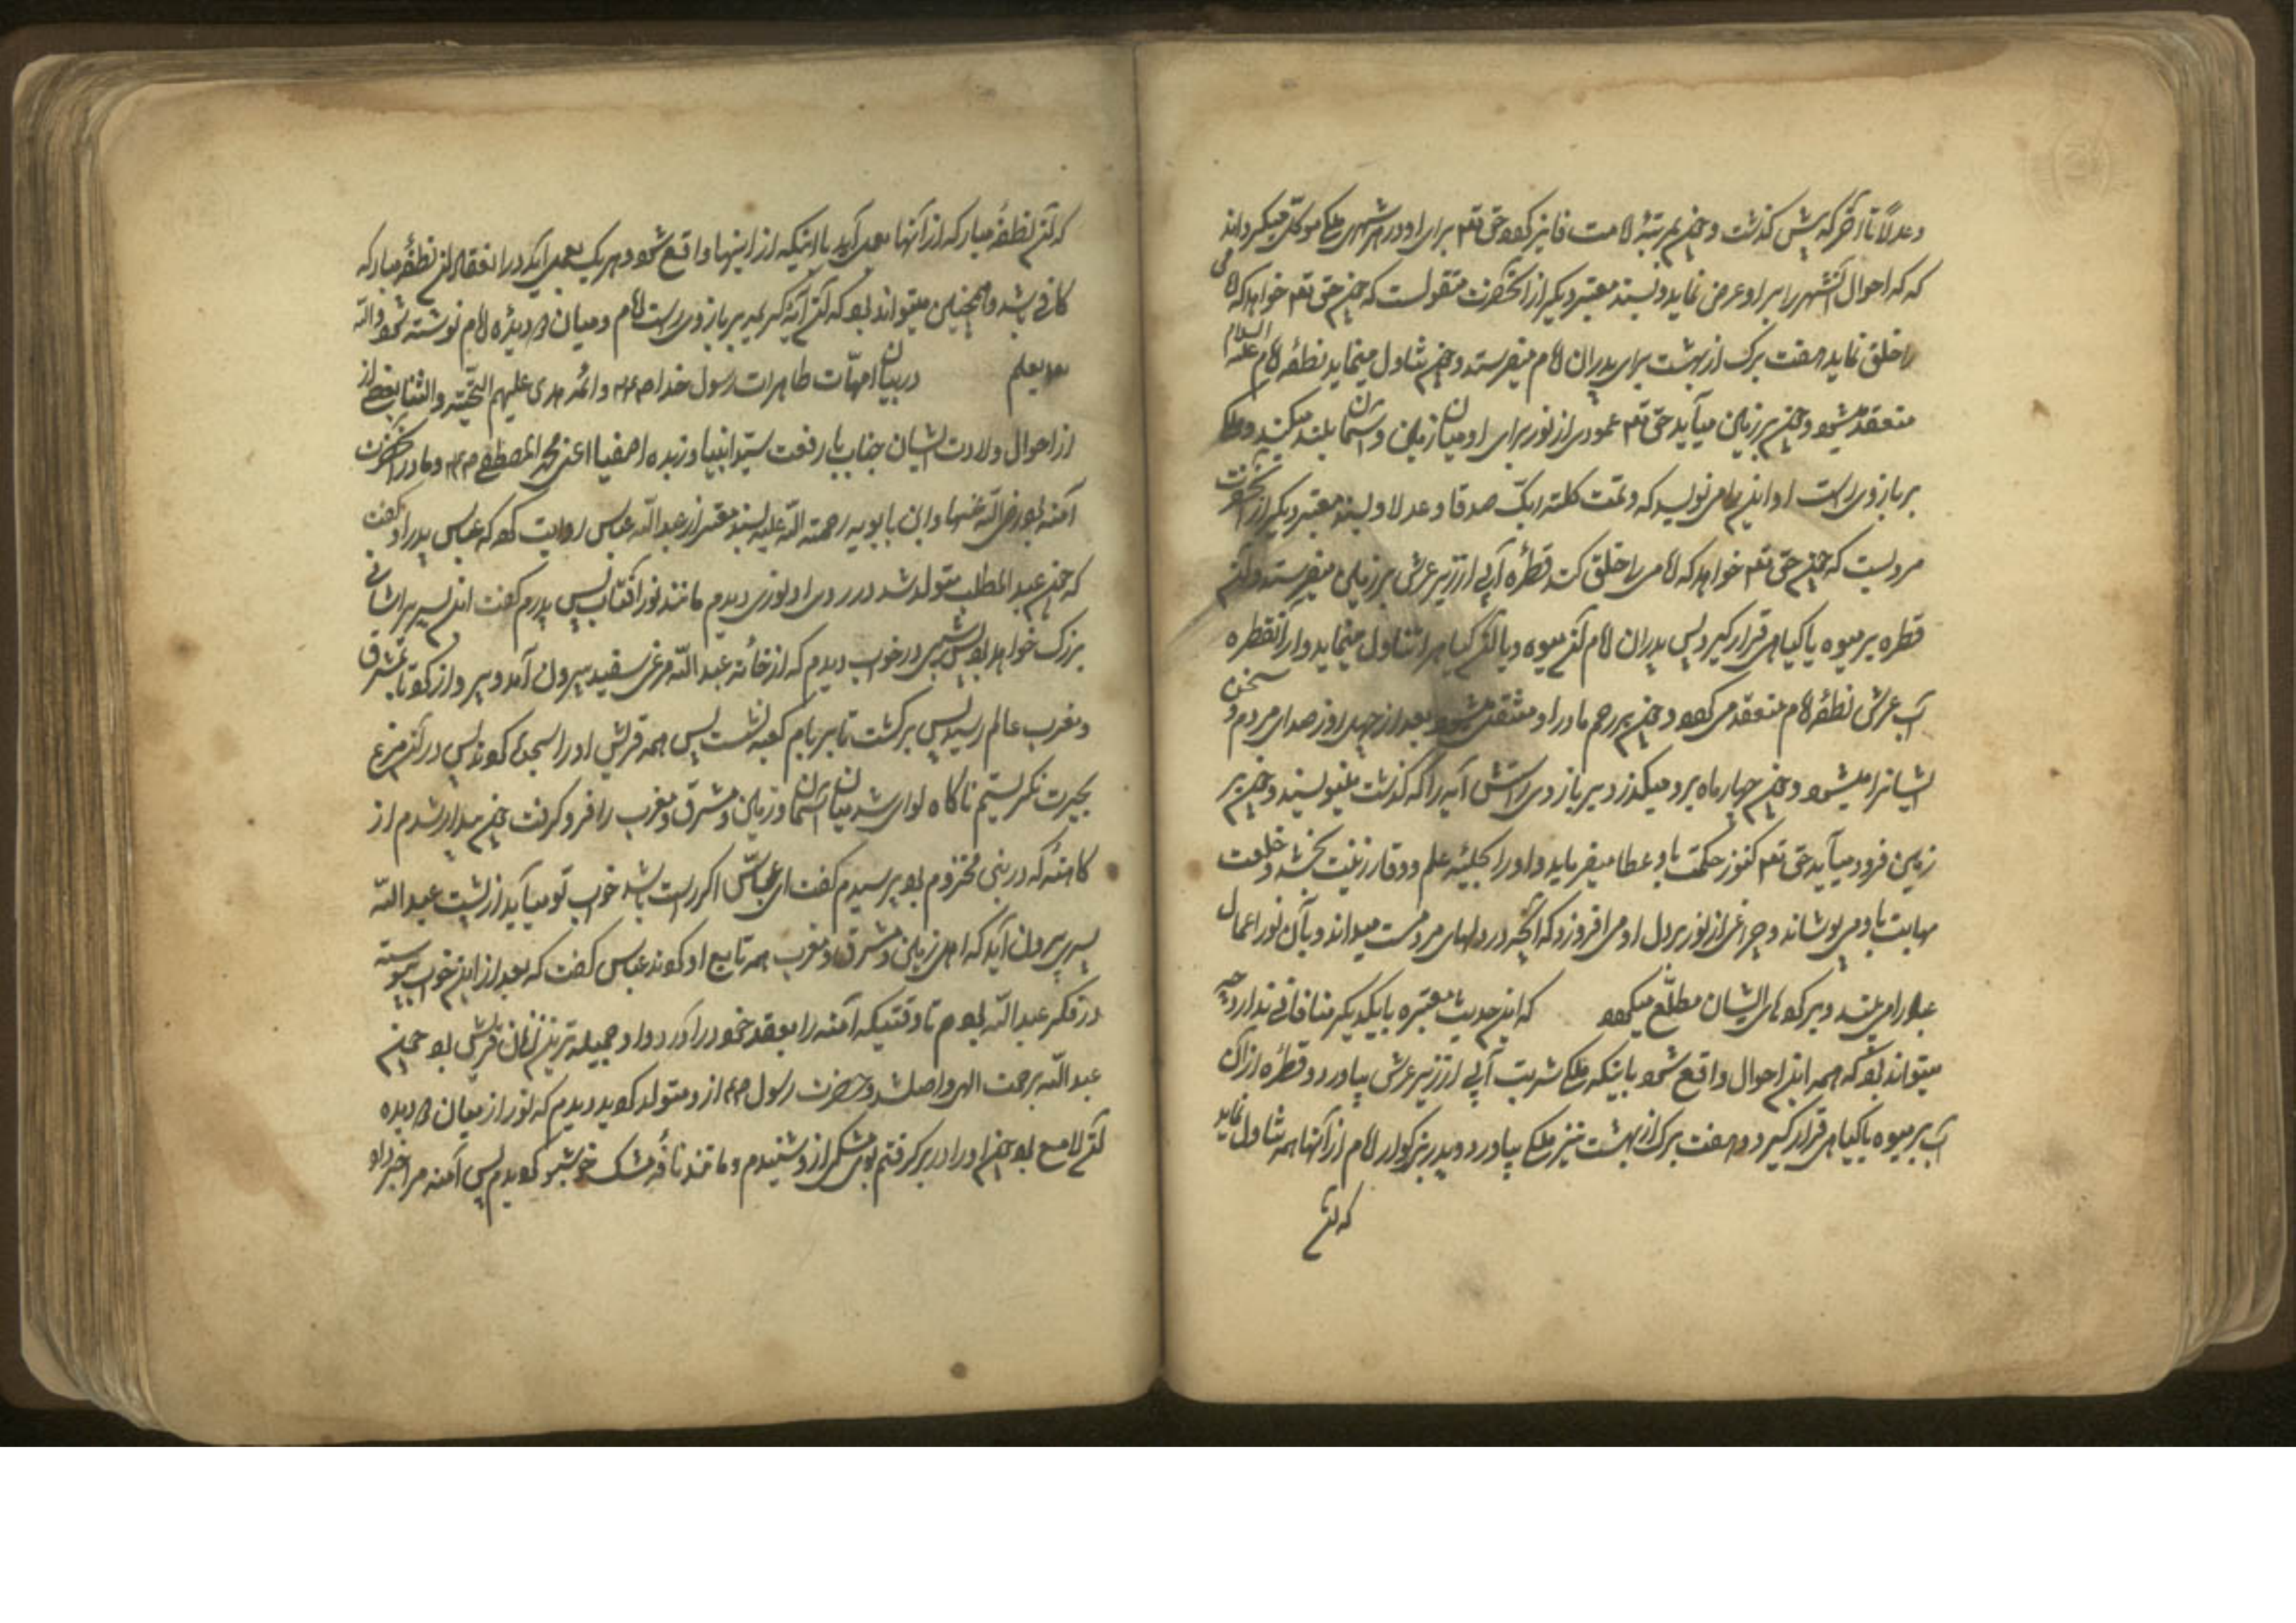 وعدلاً تا آخر که پیش گذشت و چون بمرتبهٔ امامت فایز کردد حق تعم برای او در هر شهری ملکی موکل میگرداند
که که احوال آنشهر را بر او عرض نماید و بسند معتبر دیگر از آنحضرت منقولست که چون حق تعم خواهد که امامی
را خلق نماید هفت برک از بهشت برای پدران امام میفرستد و چون تناول مینماید نطفهٔ امام علیه السلام
منعقد میشود و چون بر زمین میآید حق تعم عمودی از نور برای او میان زمین و آسمان بلند میکند و ملکی
بر بازوی راست او این را می نویسد که وتمت کلمة ربک صدقا وعدلا و بسند معتبر دیگر از آنحضرت
مرویست که چون حق تعم خواهد که امامی را خلق کند قطره آبی از زیر عرش بر زمین میفرستد و آن
قطره بر میوه یا کیاهی قرار گیرد پس پدران امام آن میوه و یا آن گیاه را تناول مینماید و از آنقطره
آب عرش نطفهٔ امام منعقد می کردد و چون برحم مادر او منتقل میشود بعد از چهل روز صدای مردم و سخن
ایشانرا میشنود و چون چهار ماه برو میگذرد بر بازوی راستش آیه را که گذشت مینویسند و چون بر
زمین فرود میآید حق تعم کنوز حکمت باو عطا میفرماید و او را بحلیهٔ علم و وقار زینت بخشد و خلعت
مهابت باو می پوشاند و چراغی از نور بر دل او می افروزد که آنچه در دلهای مردمست میداند و بآن نور اعمال
عباد را می بیند و بر کردهای ایشان مطلع میکردد که این حدیث معتبره با یکدیگر منافاتی ندارد چه
میتواند بود که همه این احوال واقع شود باینکه ملکی شربت آبی از زیر عرش بیاورد و قطره از آن
آب بر میوه یا کیاهی قرار گیرد و هفت برک از بهشت نیز ملکی بیاورد و پدر بزرکوار امام از آنها همه تناول نماید
که آن
که آن نطفهٔ مبارکه از آنها بعمل آید یا اینکه از اینها واقع شود و هر یک بعمل آید در انعقاد آن نطفهٔ مبارکه
کافی باشد و همچنین میتواند بود که آن آیهٔ کریمه بر بازوی راست امام و میان دو دیدهٔ امام نوشته شود والله
یعلم در بیان امهات طاهرات رسول خدا صم و ائمه هدی علیهم التحیة والثنا بعضی از
از احوال ولادت ایشان جناب با رفعت سید انبیا و زبده اصفیا اعنی محمد المصطفی صم و مادر آنحضرت
آمنه بود رضی الله عنها و ابن بابویه رحمة الله علیه بسند معتبر از عبدالله عباس روایت کرده که عباس پدر او گفت
که چون عبدالمطلب متولد شد در روی او نوری دیدم مانند نور آفتاب پس پدرم گفت این پسر را شانی
بزرک خواهد بود پس شبی در خواب دیدم که از خانه عبدالله مرغی سفید بیرون آمد و پرواز کرد تا بمشرق
و مغرب عالم رسید پس برگشت تا بر بام کعبه نشست پس همه قریش او را سجده کردند پس در آن مرغ
بحیرت نگریستیم ناکاه نوری شد میان آسمان و زمین و مشرق و مغرب را فرو گرفت چون بیدار شدم از
کاهنهٔ که در بنی مخزوم بود پرسیدم گفت ای عباس اگر راست باشد خواب تو میآید از پشت عبدالله
پسری بیرون آید که اهل زمین و مشرق و مغرب همه تابع او کردند عباس گفت که بعد از این خواب پیوسته
در فکر عبدالله بودم تا وقتیکه آمنه را بعقد خود درآورد و او جمیله ترین زنان قریش بود چون
عبدالله برحمت الهی واصل شد و حضرت رسول صم ازو متولد کردید دیدم که نور از میان دو دیده
آن لامع بود چون او را در بر گرفتم بوی مشک ازو شنیدم و مانند نافهٔ مشک خوشبو کردیدم پس آمنه مرا خبر داد